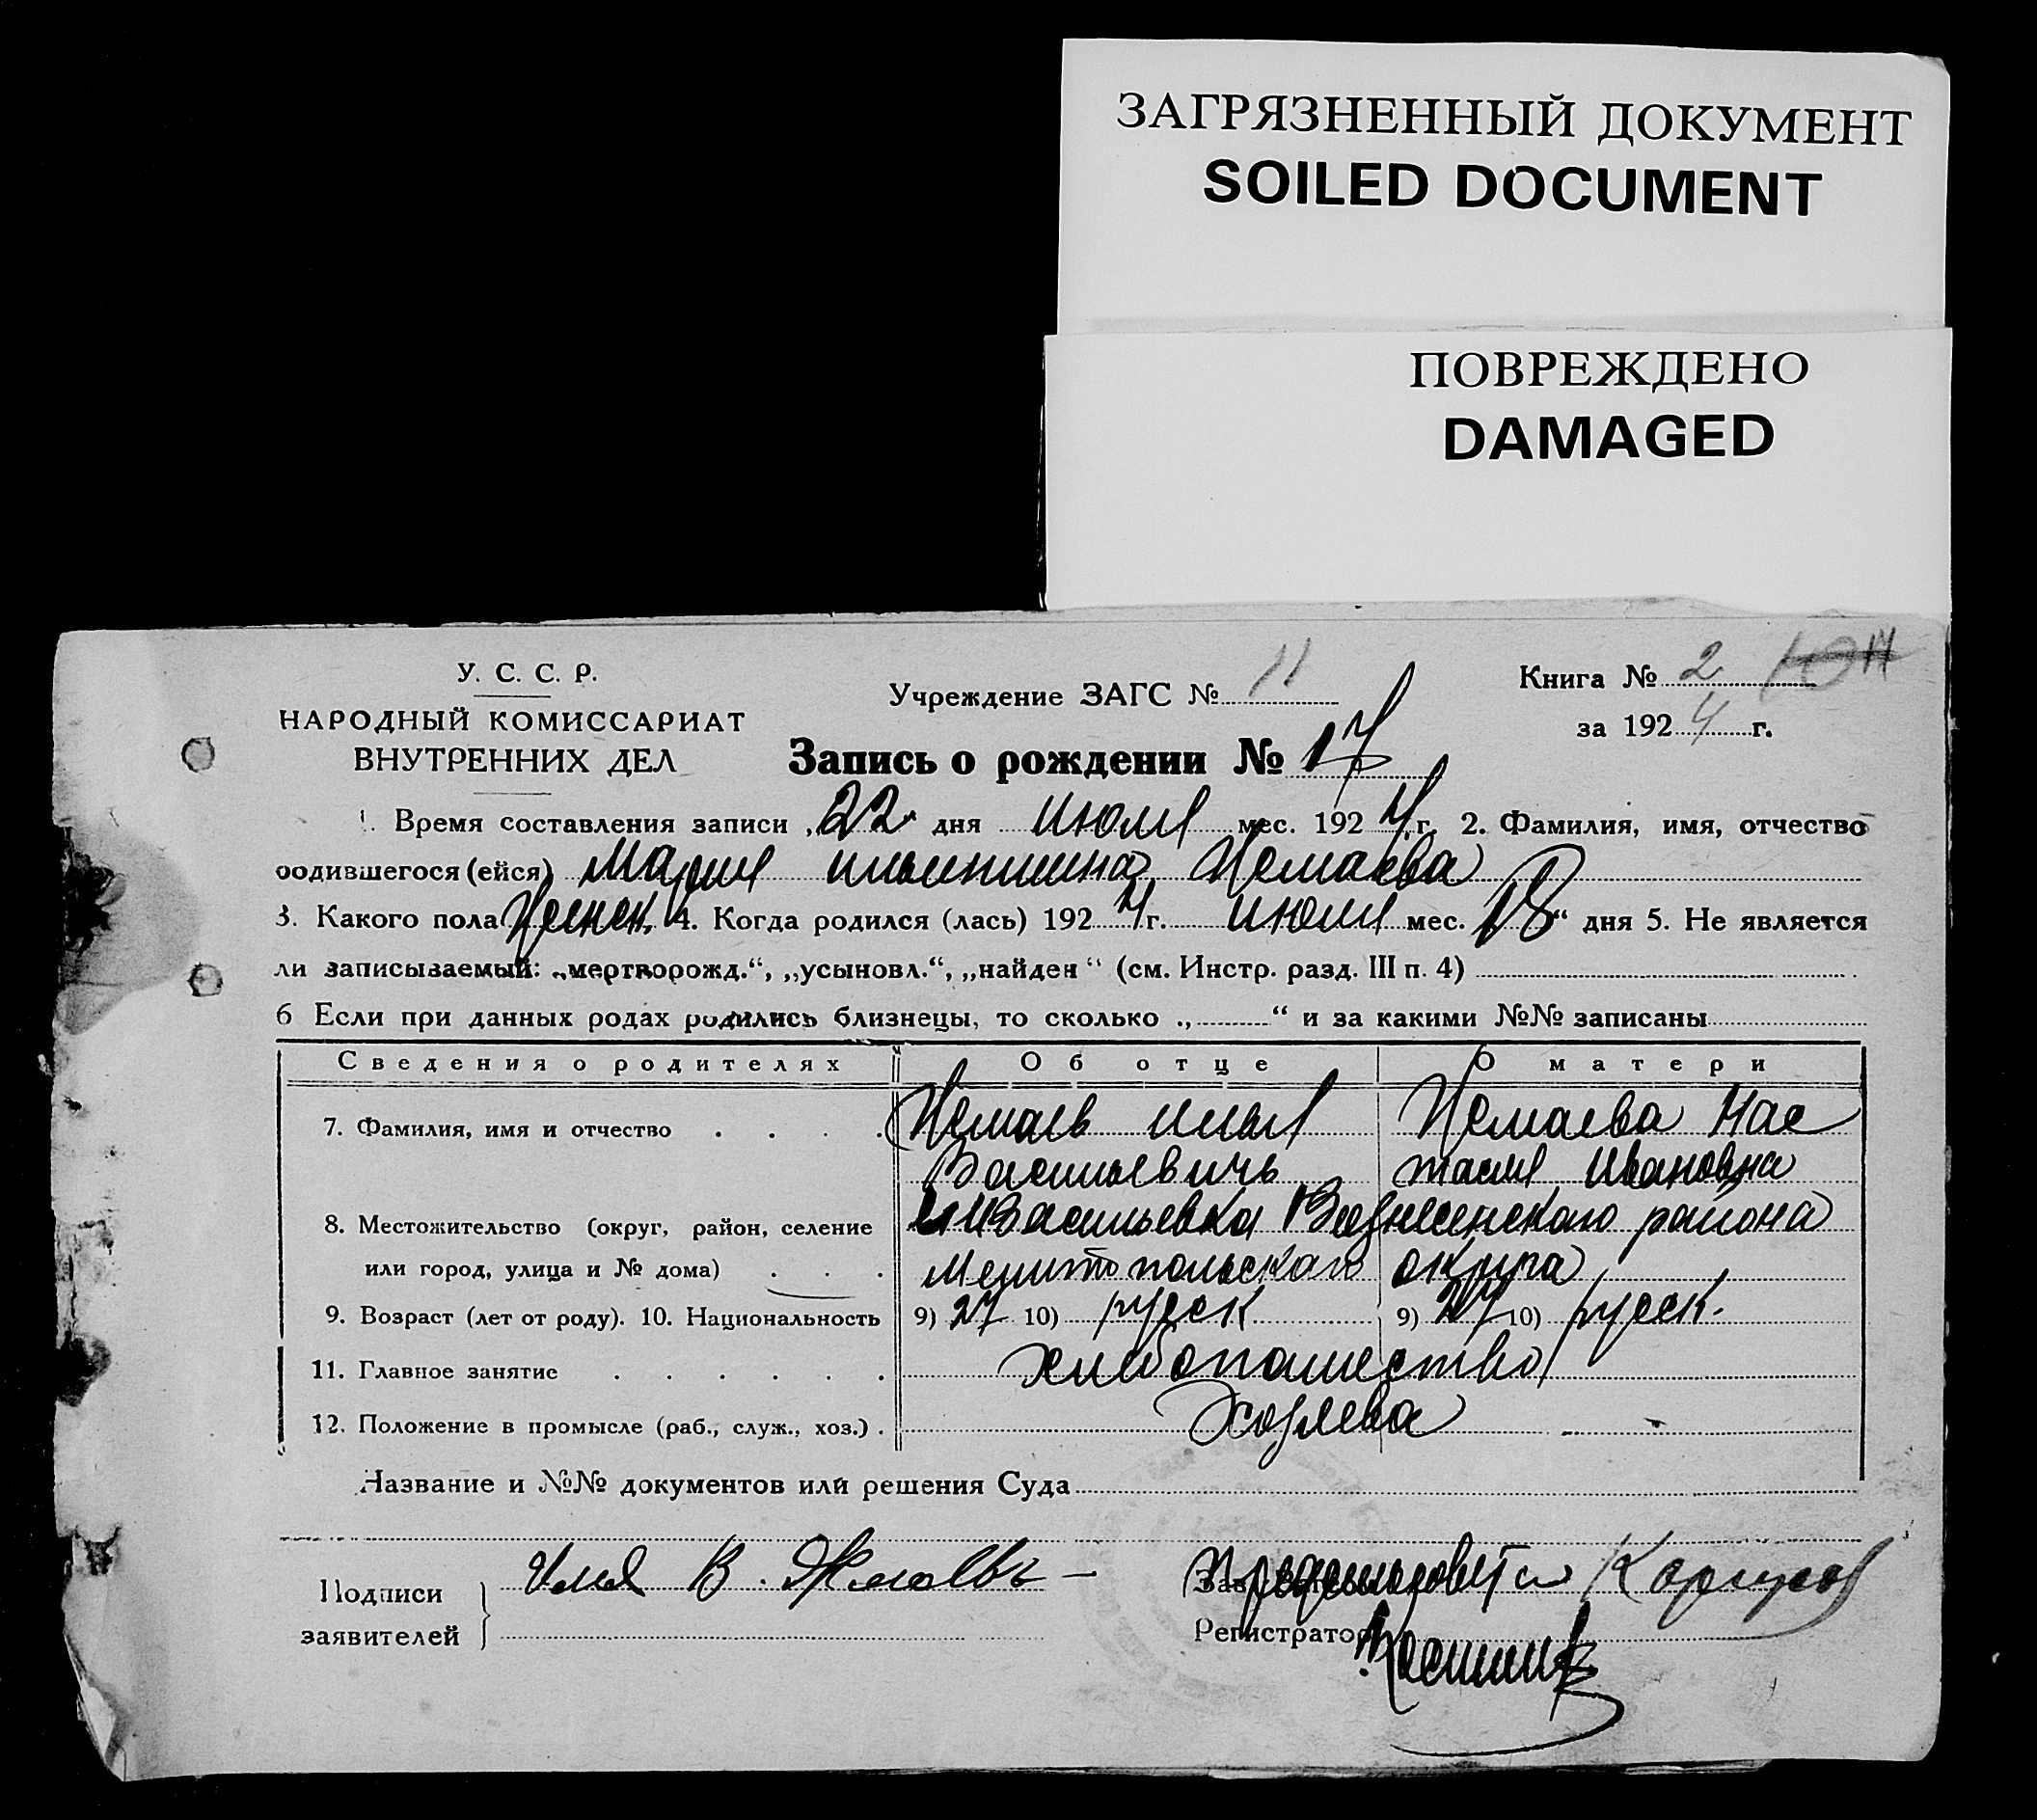 ЗАГРЯЗНЕННЫЙ ДОКУМЕНТ
SOILED DOCUMENT
ПОВРЕЖДЕНО
DAMAGED
У. С. С. Р.
НАРОДНЫЙ КОМИССАРИАТ
ВНУТРЕННИХ ДЕЛ
Учреждение ЗАГС № 11
Книга № 2
за 1924 г.
Запись о рождении № 17
1. Время составления записи „22" дня июля мес. 1924 г. 2. Фамилия, имя, отчество
родившегося (ейся) Мария
3. Какого пола женск. 4. Когда родился (лась) 1924 г. июля мес. 18 “ дня 5. Не является
ли записываемый: „мертворожд.“, „усыновл.“, „найден“ (см. Инстр. разд. III п. 4)
6 Если при данных родах родились близнецы, то сколько „ “ и за какими №№ записаны
Сведения о родителях Об отце О матери
7. Фамилия, имя и отчество Илья Нас
Васильевичь тасия Ивановна
8. Местожительство (округ, район, селение Васильевка района
или город, улица и № дома) Мелитопольского округа
9. Возраст (лет от роду). 10. Национальность 9) 27 10) русск 9) 27 10) русск.
11. Главное занятие хлебопашество
12. Положение в промысле (раб., служ., хоз.) Хозяева
Название и №№ документов или решения Суда
Подписи
заявителей
Илия В.
Регистратор